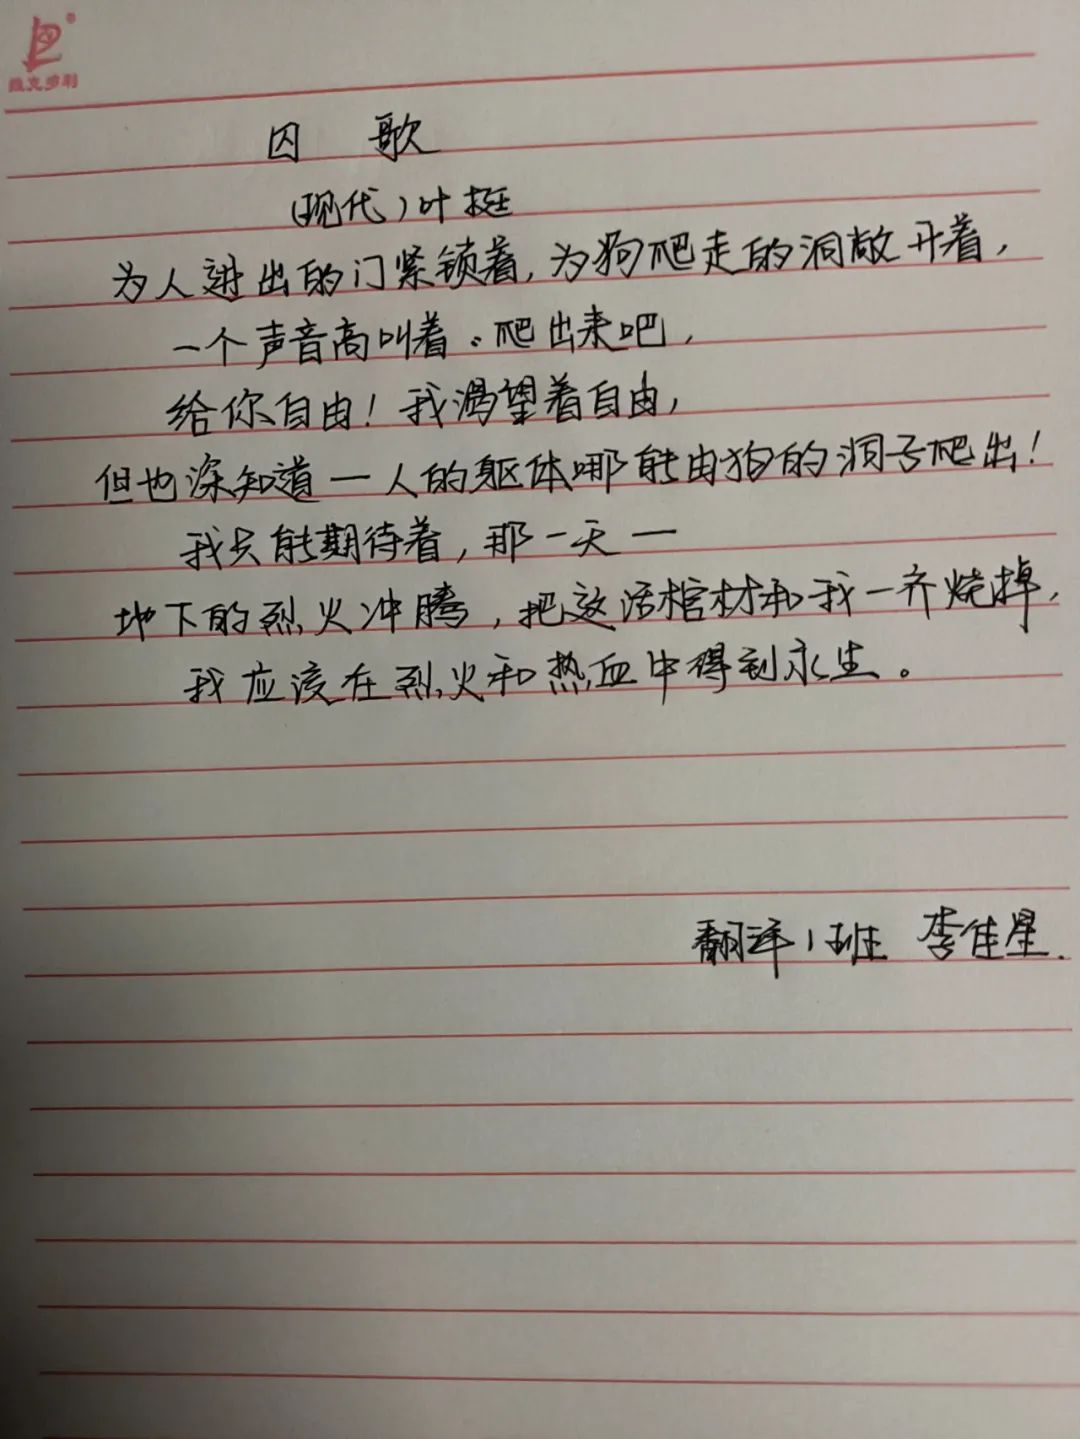 囚 歌
(现代)叶挺
为人进出的门紧锁着,为狗爬走的洞敞开着,
一个声音高叫着。爬出来吧,
给你自由!我渴望着自由,
但也深知道一人的躯体哪能由狗的洞子爬出!
我只能期待着,那一天一
地下的烈火冲腾,把这活棺材和我一齐烧掉,
我应该在烈火和热血中得到永生。
翻译1班 李佳星.